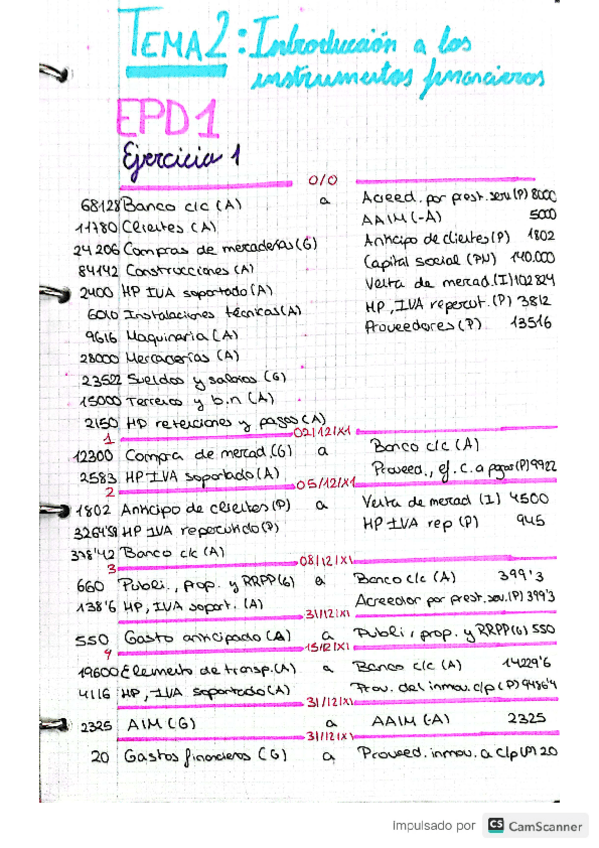 TEMA 2: Introducción a los
instrumentos financieros
EPD1
Ejercicio 1
0/0
68128 Banco c/c (A) a Acreed. por prest. serv (P) 8000
11780 Clientes (A) AAIM (-A) 5000
24 206 Compras de mercaderías (G) Anticipo de clientes (P) 1802
84142 Construcciones (A) Capital social (PN) 140.000
2400 HP IVA soportado (A) Venta de mercad. (I) 102824
6010 Instalaciones técnicas (A) HP, IVA repercut. (P) 3812
9616 Maquinaria (A) Proveedores (P) 13516
28000 Mercaderías (A)
23522 Sueldos y salarios (G)
15000 Terrenos y b.n (A)
2150 HP retenciones y pagos (A)
1 02/12/X1
12300 Compra de mercad. (G) a Banco c/c (A)
2583 HP IVA soportado (A) Proveed., ef. c. a pagar (P) 9922
2 05/12/X1
1802 Anticipo de clientes (P) a Venta de mercad (I) 4500
3264'58 HP IVA repercutido (P) HP IVA rep (P) 945
378'42 Banco c/c (A)
3 08/12/X1
660 Publi., prop. y RRPP (G) a Banco c/c (A) 399'3
138'6 HP, IVA soport. (A) Acreedor por prest. serv. (P) 399'3
31/12/X1
550 Gasto anticipado (A) a Publi, prop. y RRPP (G) 550
4 15/12/X1
19600 Elemento de transp. (A) a Banco c/c (A) 14229'6
4116 HP, IVA soportado (A) Prov. del inmov. c/p (P) 9486'4
31/12/X1
2325 AIM (G) a AAIM (-A) 2325
31/12/X1
20 Gastos financieros (G) a Proveed. inmov. a c/p (P) 20
Impulsado por CS CamScanner